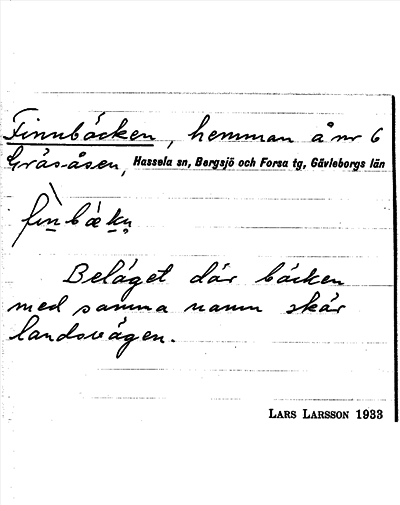 Finnbäcken, hemman å nr 6
Gräsåsen, Hassela sn, Bergsjö och Forsa tg, Gävleborgs län
Beläget där bäcken
med samma namn skär
landsvägen.
LARS LARSSON 1933